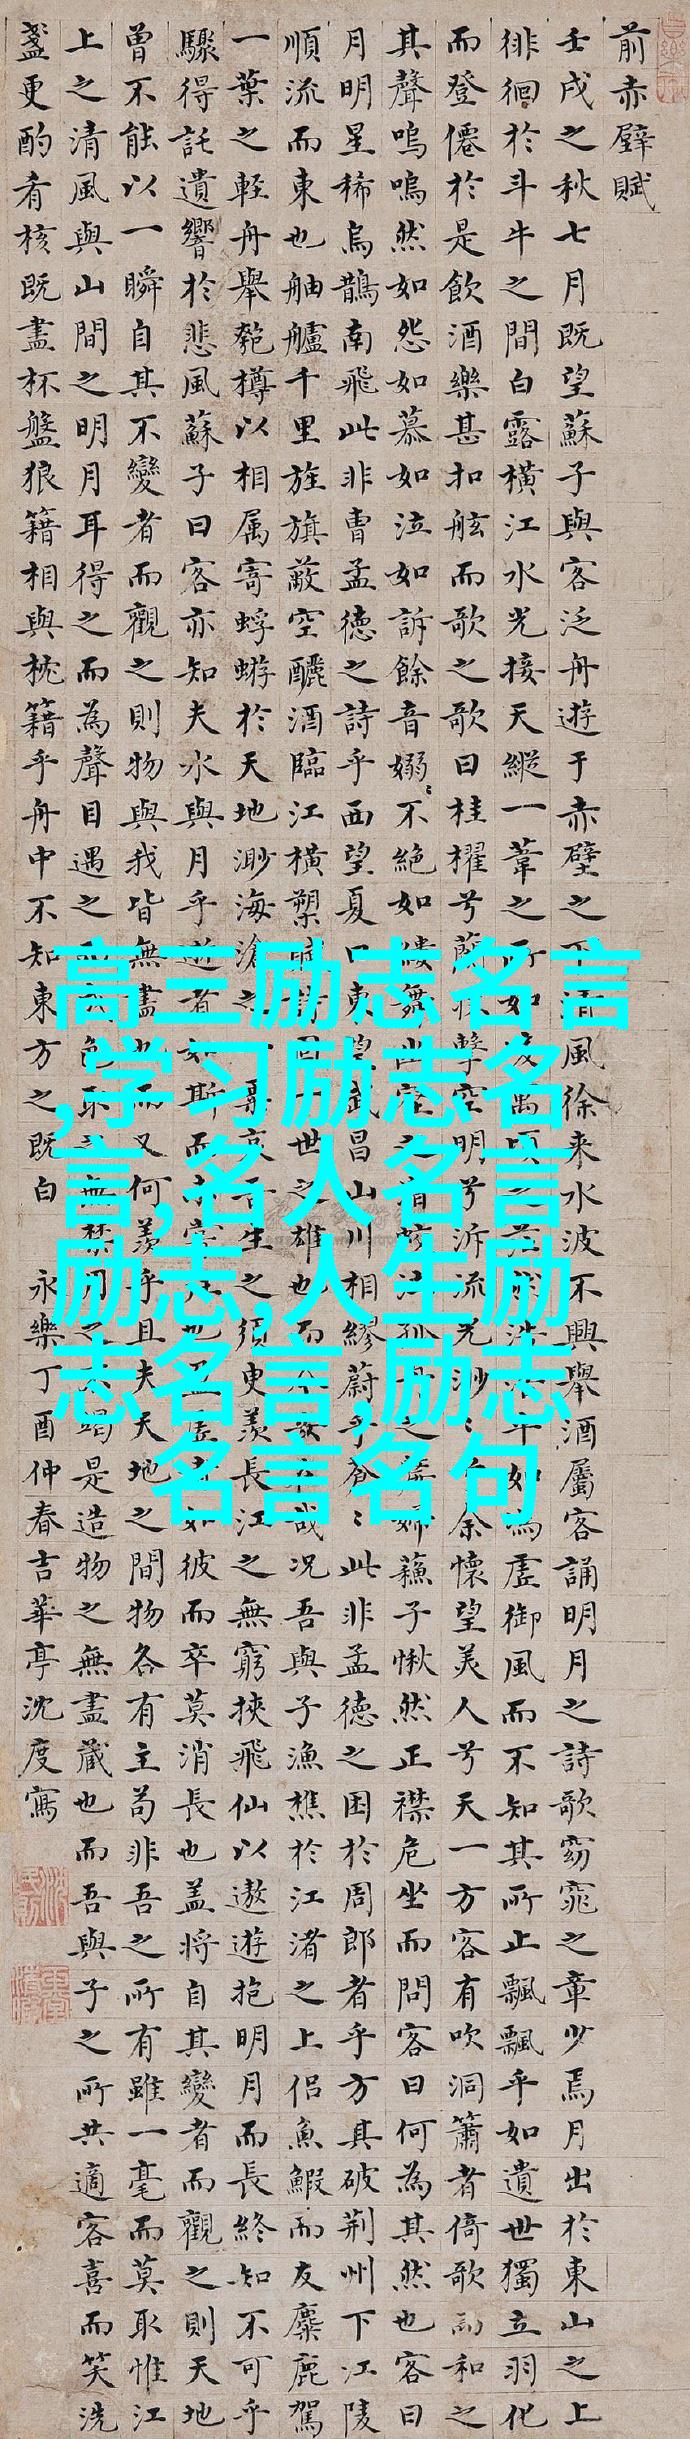 前赤壁賦
壬戌之秋七月既望蘇子與客泛舟遊于赤壁之下清風徐来水波不興舉酒屬客誦明月之詩歌窈窕之章少焉月出於東山之上
徘徊於斗牛之間白露橫江水光接天縱一葦之所如凌萬頃之茫然浩浩乎如馮虛御風而不知其所止飄飄乎如遺世獨立羽化
而登僊於是飲酒樂甚扣舷而歌之歌曰桂櫂兮蘭槳擊空明兮泝流光渺〻兮余懷望美人兮天一方客有吹洞簫者倚歌而和之
其聲嗚嗚然如怨如慕如泣如訴餘音嫋〻不絕如縷舞幽壑之潛蛟泣孤舟之嫠婦蘇子愀然正襟危坐而問客曰何為其然也客曰
月明星稀烏鵲南飛此非曹孟德之詩乎西望夏口東望武昌山川相繆蔚乎蒼〻此非孟德之困於周郎者乎方其破荆州下江陵
順流而東也舳艫千里旌旗蔽空釃酒臨江橫槊賦詩固一世之雄也而今安在哉况吾與子漁樵於江渚之上侶魚鰕而友麋鹿駕
一葉之輕舟舉匏樽以相属寄蜉蝣於天地渺海滄之一粟哀吾生之須臾羨長江之無窮挾飛仙以遨遊抱明月而長終知不可乎
驟得託遺響於悲風蘇子曰客亦知夫水與月乎逝者如斯而未嘗往也盈虛者如彼而卒莫消長也盖将自其變者而觀之則天地
曾不能以一瞬自其不變者而觀之則物與我皆無盡也而又何羨乎且夫天地之間物各有主苟非吾之所有雖一毫而莫取惟江
上之清風與山間之明月耳得之而為聲目遇之而成色取之無禁用之不竭是造物之無盡藏也而吾與子之所共適客喜而笑洗
盞更酌肴核既盡杯盤狼籍相與枕籍乎舟中不知東方之既白 永樂丁酉仲春吉華亭沈度寫
高三励志名言
,学习励志名
言,名人名言
励志,人生励
志名言,励志
名言名句